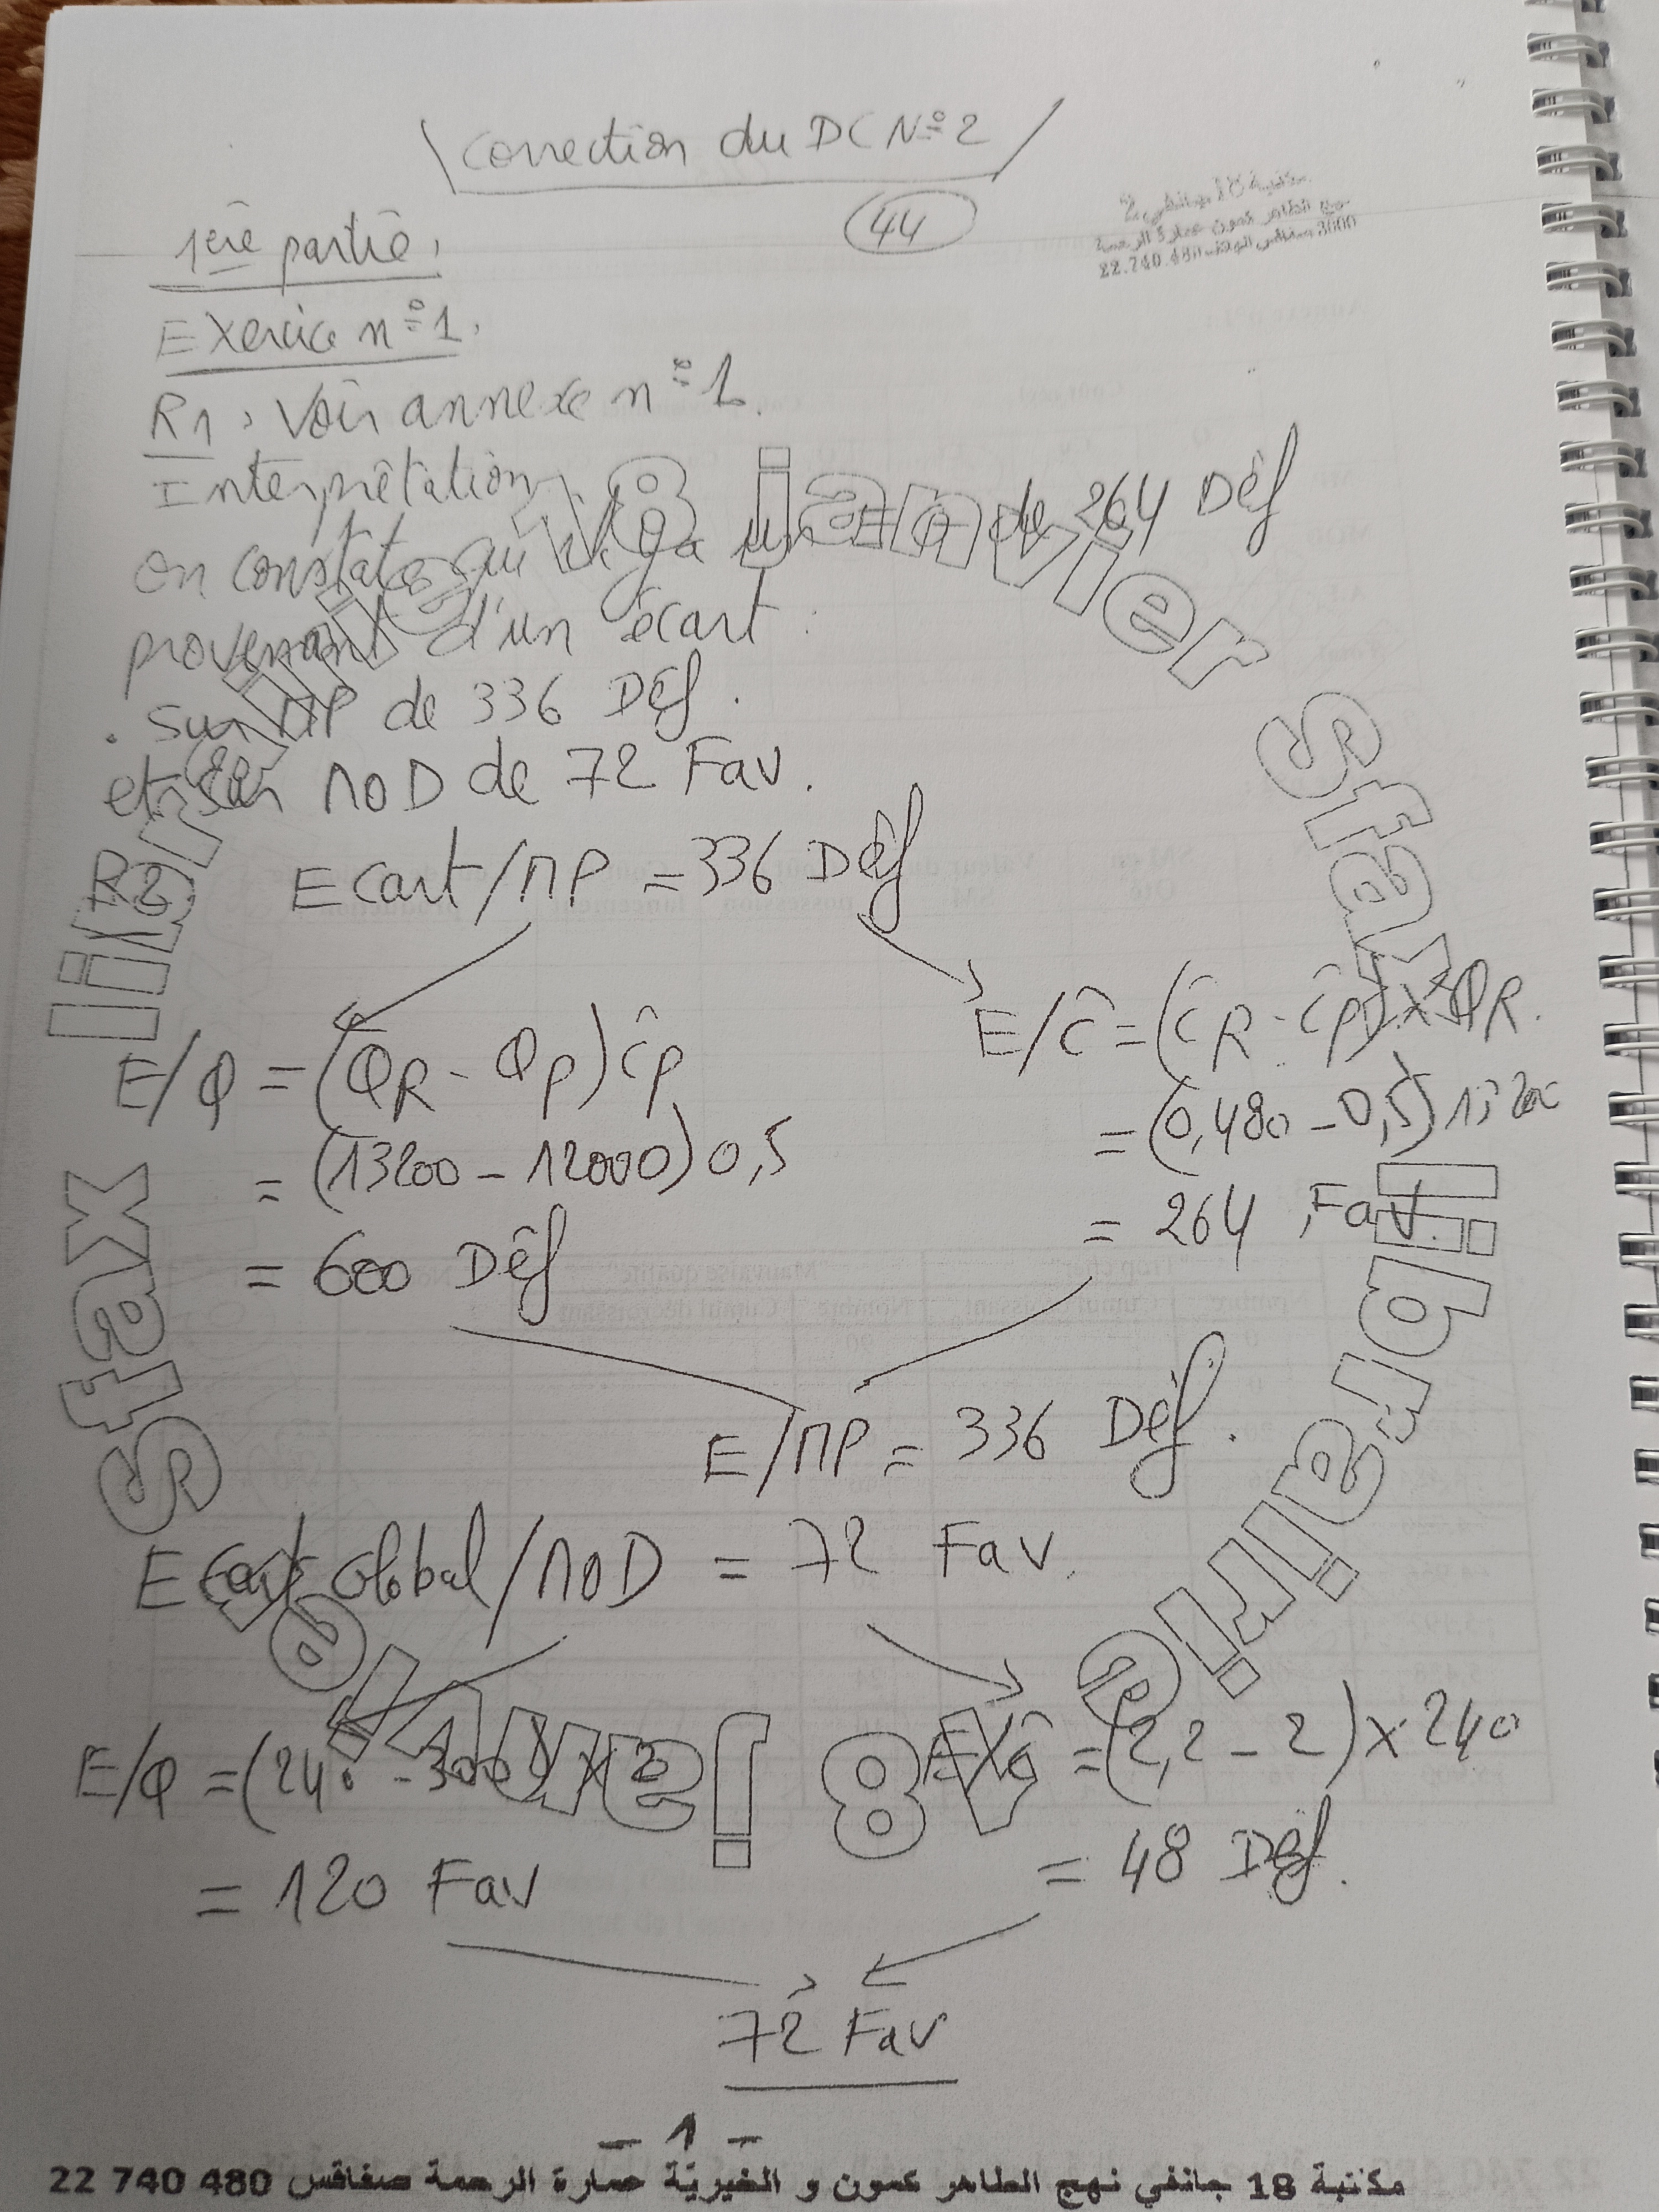 Correction du DC N° 2
44
مكتبة 18 جانفي 2
نهج الطاهر كمون عمارة الرحمة
3000 صفاقس الهاتف: 22.740.480
1ère partie.
Exercice n° 1.
R1, Voir annexe n° 1.
Interprétation
on constate qu'il y a un E/ de 264 Déf
provenant d'un écart :
. Sur MP de 336 Déf.
et sur MOD de 72 Fav.
R2 Ecart/MP = 336 Déf
E/Q = (QR - QP) ĉp
E/ĉ = (ĉR - ĉP) x QR.
= (13200 - 12000) 0,5
= (0,480 - 0,5) 13200
= 600 Déf
= 264 Fav.
E/MP = 336 Déf.
Ecart Global/MOD = 72 Fav.
E/Q = (240 - 300) x 2
E/ĉ = (2,2 - 2) x 240
= 120 Fav
= 48 Déf.
72 Fav
- 1 -
مكتبة 18 جانفي نهج الطاهر كمون و الخيرية عمارة الرحمة صفاقس 480 740 22
librairie 18 janvier sfax
librairie 18 janvier sfax